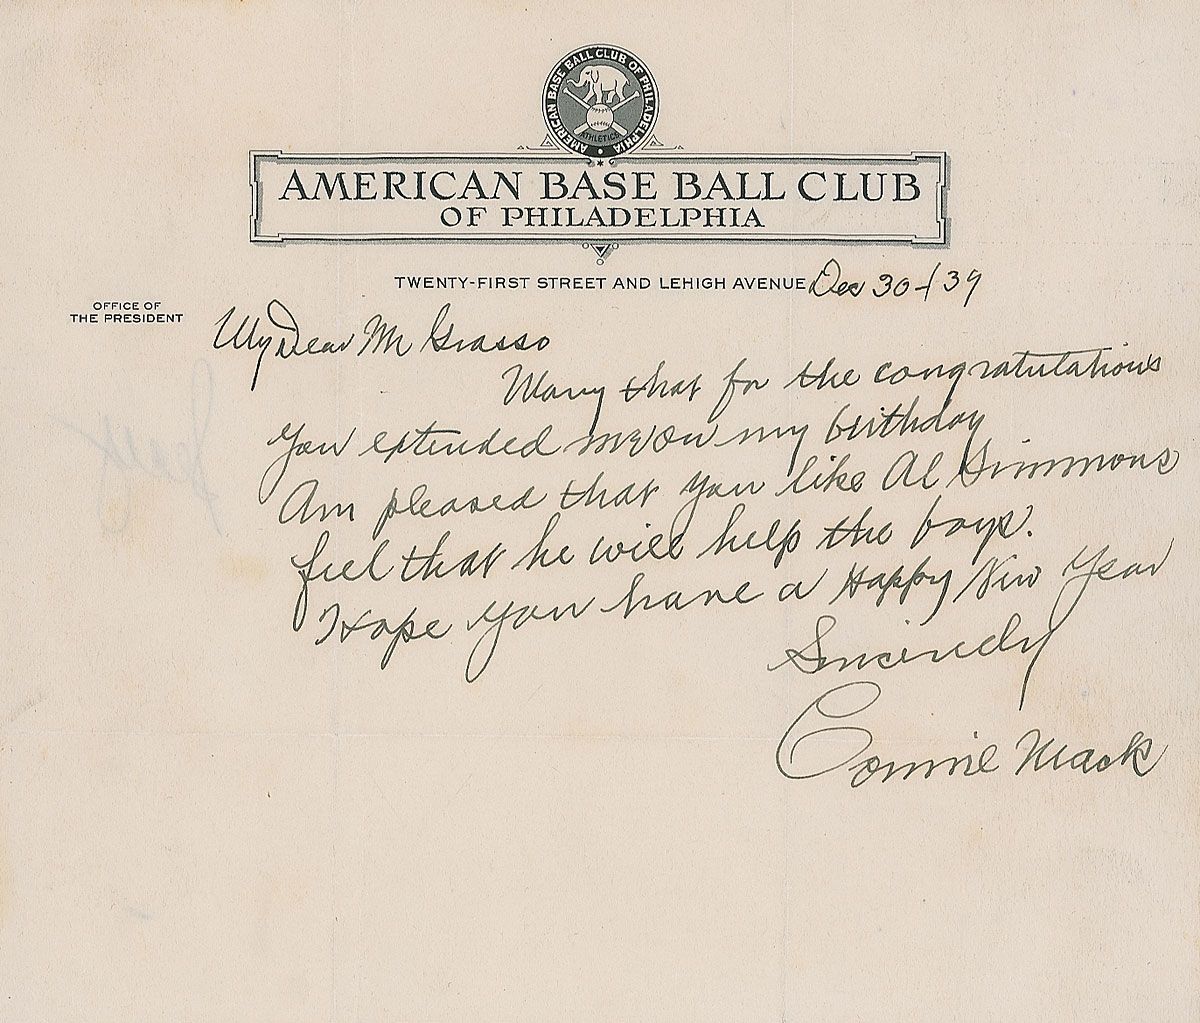 AMERICAN BASE BALL CLUB OF PHILADELPHIA
ATHLETICS
AMERICAN BASE BALL CLUB
OF PHILADELPHIA
TWENTY-FIRST STREET AND LEHIGH AVENUE Dec 30-/39
OFFICE OF
THE PRESIDENT
My Dear Mr Grasso
Many that for the congratulations
you extended me on my birthday
Am pleased that you like Al Simmons
feel that he will help the boys.
Hope you have a Happy New Year
Sincerely
Connie Mack